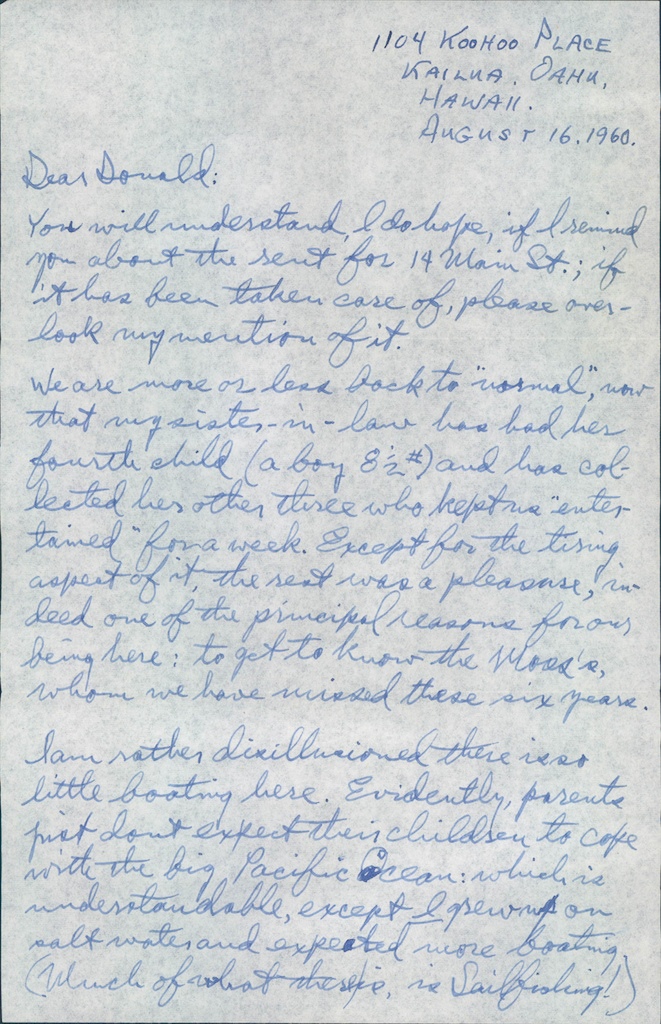 1104 KOOHOO PLACE
KAILUA. OAHU,
HAWAII.
AUGUST 16. 1960.
Dear Donald:
You will understand, I do hope, if I remind
you about the rent for 14 Main St.; if
it has been taken care of, please over-
look my mention of it.
We are more or less back to "normal", now
that my sister-in-law has had her
fourth child (a boy 8½#) and has col-
lected her other three who kept us "enter-
tained" for a week. Except for the tiring
aspect of it, the rest was a pleasure, in-
deed one of the principal reasons for our
being here: to get to know the Moss's,
whom we have missed these six years.
I am rather disillusioned there is so
little boating here. Evidently, parents
just dont expect their children to cope
with the big Pacific Ocean: which is
understandable, except I grew up on
salt water and expected more boating.
(Much of what there is, is Sailfishing!)